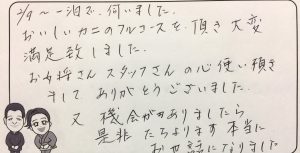 2/9～一泊で、伺いました。
おいしいカニのフルコースを、頂き大変
満足致しました。
お女将さんスタッフさんの心使い頂き
まして ありがとうございました。
又 機会がありましたら
是非 たちよります 本当に
お世話になりました